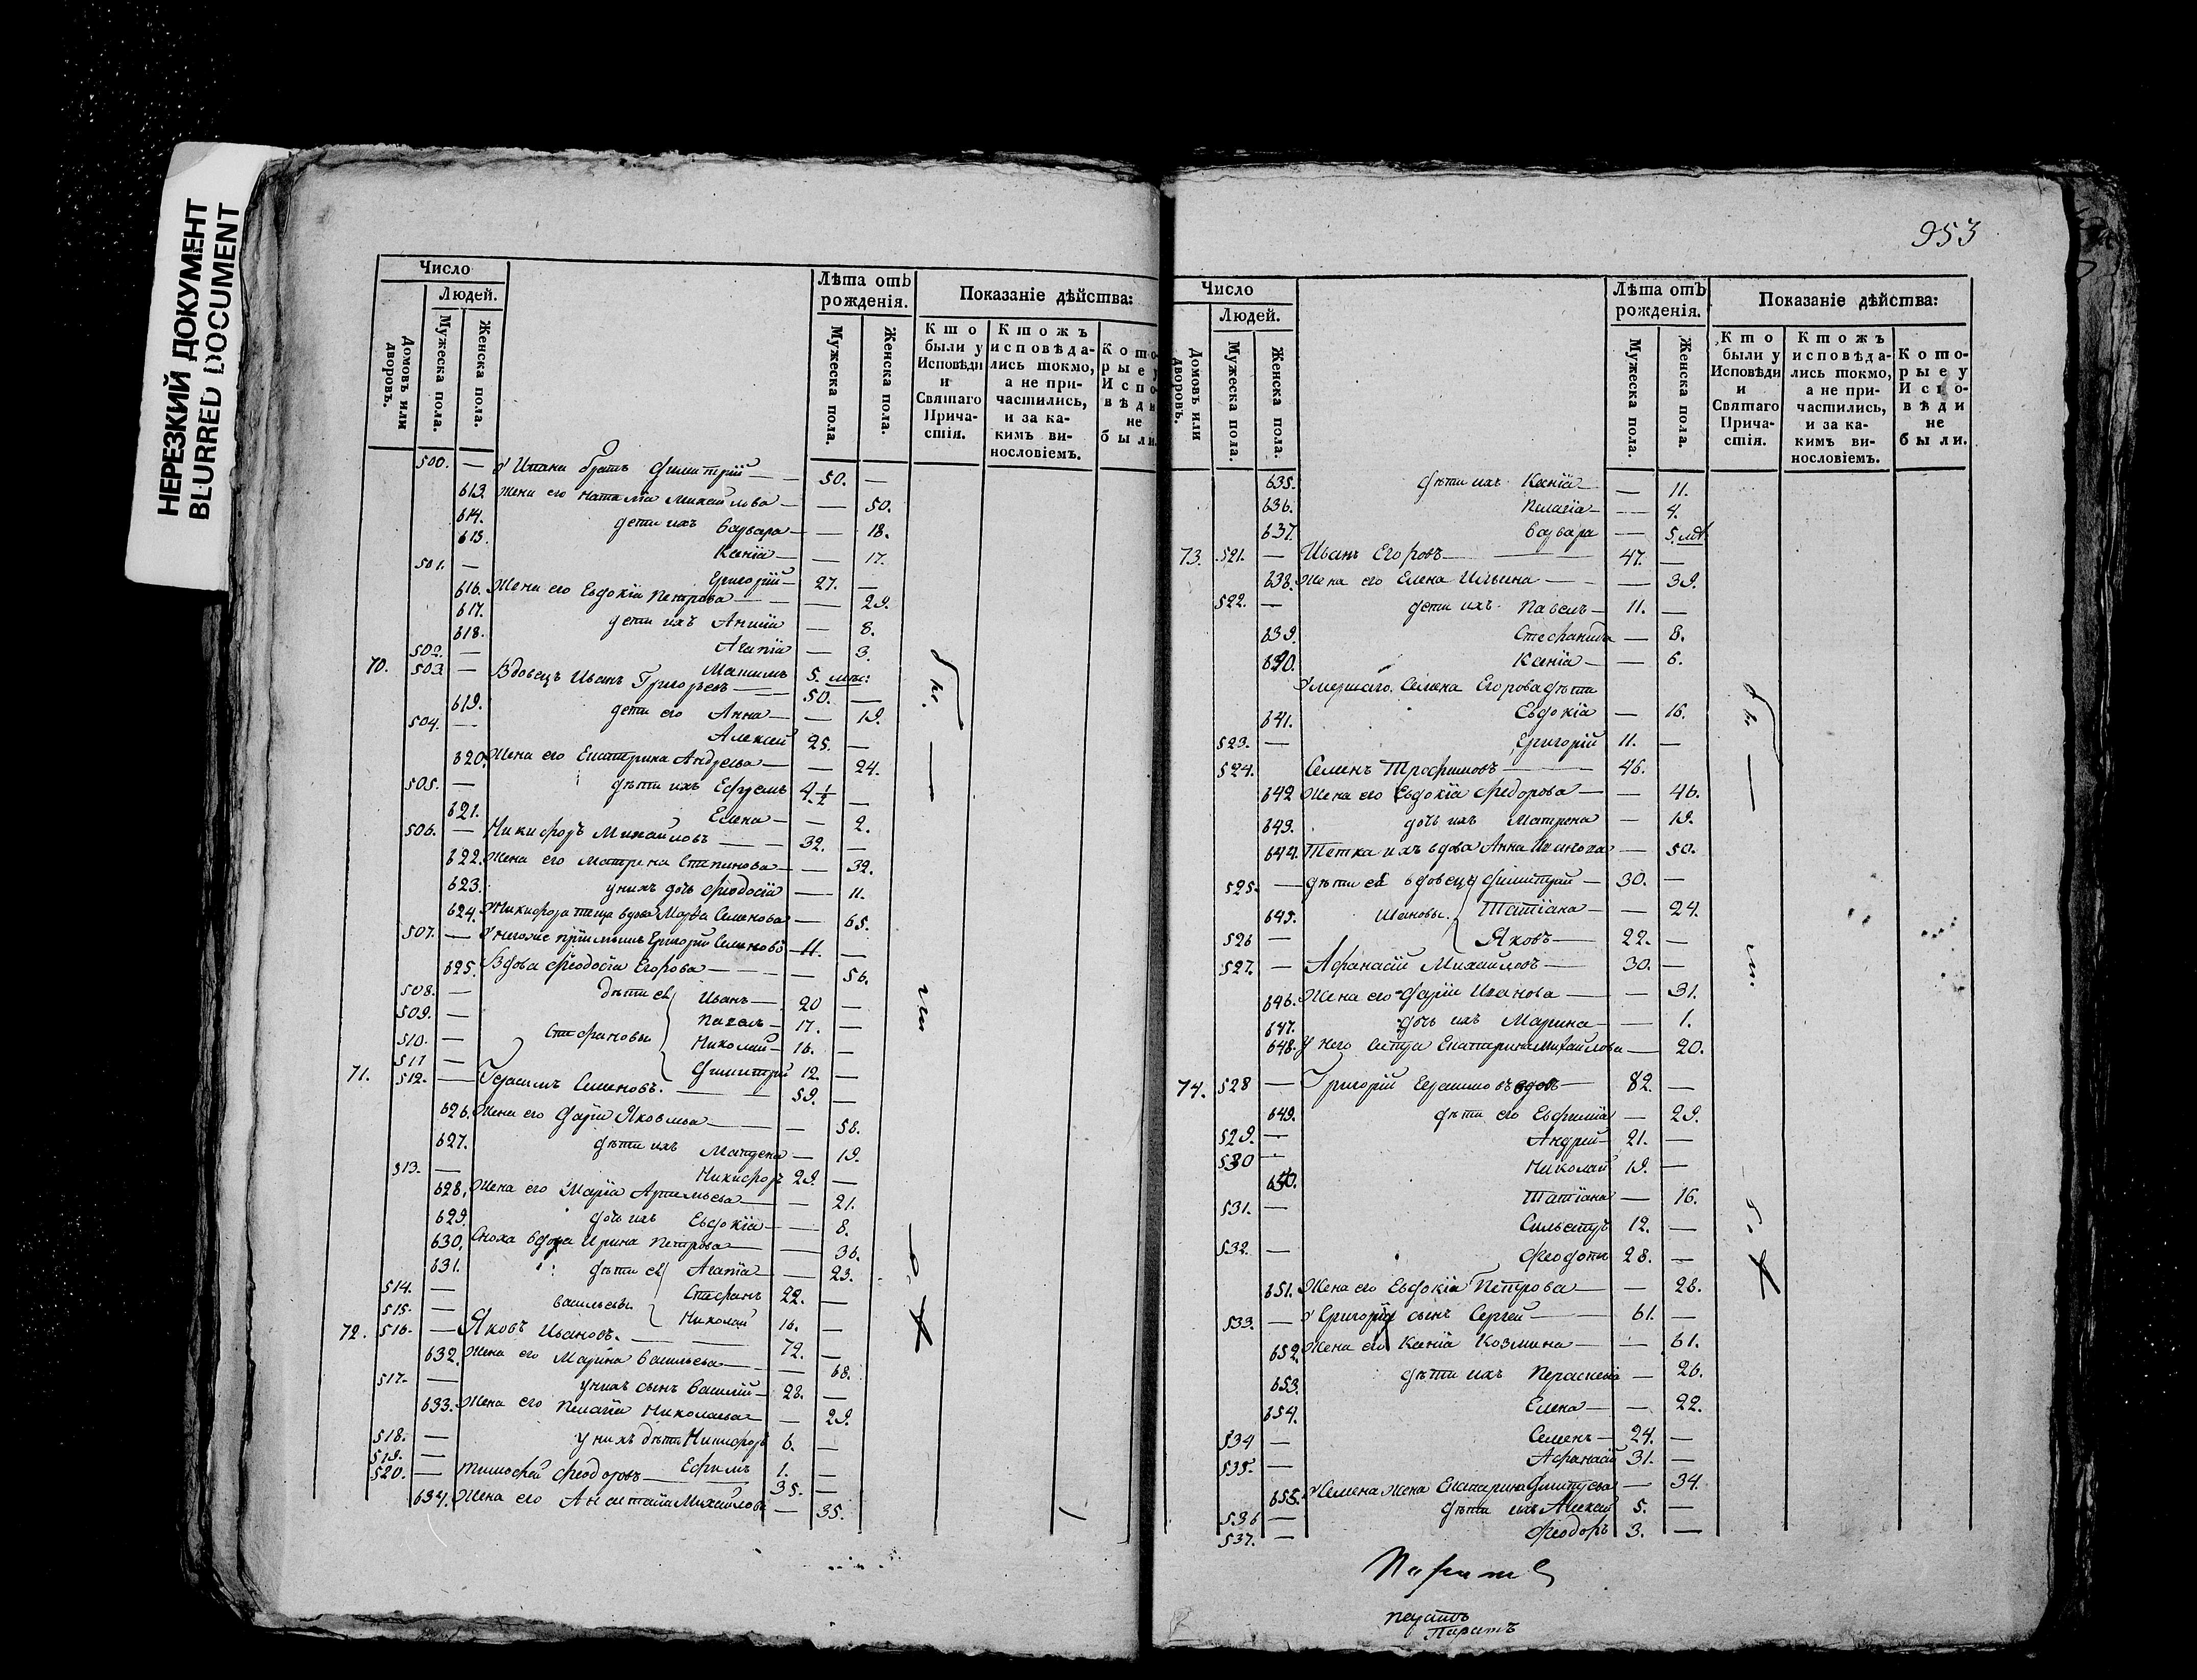 НЕРЕЗКИЙ ДОКУМЕНТ
BLURRED DOCUMENT
Число
Людей.
Домовъ или дворовъ.
Мужеска пола.
Женска пола.
Лѣта отъ рожденія.
Мужеска пола.
Женска пола.
Показаніе дѣйства:
Кто были у Исповѣди и Святаго Причастія.
Ктожъ исповѣдались токмо, а не причастились, и за какимъ винословіемъ.
Которые у Исповѣди не были.
500. — У Ивана братъ Димитрій — 50. —
613. Жена его Наталія Михайлова — — 50.
614. дети ихъ Варвара — — 18.
615. Ксенія — — 17.
501. — Григорій — 27. —
616. Жена его Евдокія Петрова — — 29.
617. дети ихъ Анисія — 8.
618. Агапія — 3.
502. — Максимъ 5. мѣс:
70. 503. — Вдовецъ Иванъ Григорьевъ — 50. —
619. дети его Анна — — 19.
504. — Алексей 25. —
620. Жена его Екатерина Андреева — — 24.
505. — дѣти ихъ Ефремъ 4 1/2 —
621. Елена — — 2.
506. — Никифоръ Михайловъ — 32. —
622. Жена его Матрена Степанова — — 32.
623. у нихъ дочь Феодосія — 11.
624. У Никифора теща вдова Марѳа Семенова — 65.
507. — У негоже пріемышъ Григорій Семеновъ — 11. —
625. Вдова Феодосія Егорова — — 56.
508. — дѣти ея Иванъ — 20 —
509. — Павелъ — 17. —
510. — Стефановы Николай — 16. —
511 — Димитрій 12. —
71. 512. — Герасимъ Семеновъ. — 59. —
626. Жена его Дарія Яковлева — — 58.
627. дѣти ихъ Матрена — 19.
513. — Никифоръ 29. —
628. Жена его Марія Артемьева — — 21.
629. дочь ихъ Евдокія — — 8.
630. Сноха вдова Ирина Петрова — — 36.
631. дѣти ея Агапія — — 23.
514. — Стефанъ 22. —
515. — Васильевы Николай 16. —
72. 516. — Яковъ Ивановъ. — 72. —
632. Жена его Марина Васильева — — 68.
517. — у нихъ сынъ Василій — 28. —
633. Жена его Пелагія Николаева — — 29.
518. — у нихъ дѣти Никифоръ 6. —
519. — Ефимъ 1. —
520. — Тимофей Феодоровъ — 35. —
634. Жена его Анастасія Михайлова — 35.
953
Число
Людей.
Домовъ или дворовъ.
Мужеска пола.
Женска пола.
Лѣта отъ рожденія.
Мужеска пола.
Женска пола.
Показаніе дѣйства:
Кто были у Исповѣди и Святаго Причастія.
Ктожъ исповѣдались токмо, а не причастились, и за какимъ винословіемъ.
Которые у Исповѣди не были.
635. дѣти ихъ Ксенія — — 11.
636. Пелагія — — 4.
637. Варвара — 5. мѣ
73. 521. — Иванъ Егоровъ — 47. —
638. Жена его Елена Ильина — — 39.
522. — дети ихъ Павелъ — 11. —
639. Стефанида — 8.
640. Ксенія — — 6.
Умершаго Семена Егорова дѣти
641. Евдокія — 16.
523. — Григорій 11. —
524. Семенъ Трофимовъ — 46. —
642 Жена его Евдокія Феодорова — — 46.
643. дочь ихъ Матрена — 19.
644. Тетка ихъ вдова Анна — 50.
525. — дѣти ея вдовецъ Димитрій — 30. —
645. Ивановы. Татіана — — 24.
526 — Яковъ — 22. —
527. — Афанасій Михайловъ — 30. —
646. Жена его Дарія Иванова — — 31.
647. дочь ихъ Марина — — 1.
648. У него сестра Екатерина Михайлова — 20.
74. 528 — Григорій Герасимовъ вдовъ — 82. —
649. дѣти его Евфимія — 29.
529. — Андрей — 21. —
530 — Николай 19. —
650. Татіана — 16.
531. — Сильвестръ 12. —
532 — Феодотъ 28. —
651. Жена его Евдокія Петрова — — 28.
533. — У Григорія сынъ Сергей — 61. —
652. Жена его Ксенія Козмина — — 61.
653. дѣти ихъ Параскева — 26.
654. Елена — — 22.
534 — Семенъ — 24. —
535. — Афанасій 31. —
655. У Семена жена Екатерина Димитріева — 34.
536 — дѣти ихъ Алексей 5. —
537. — Феодоръ 3. —